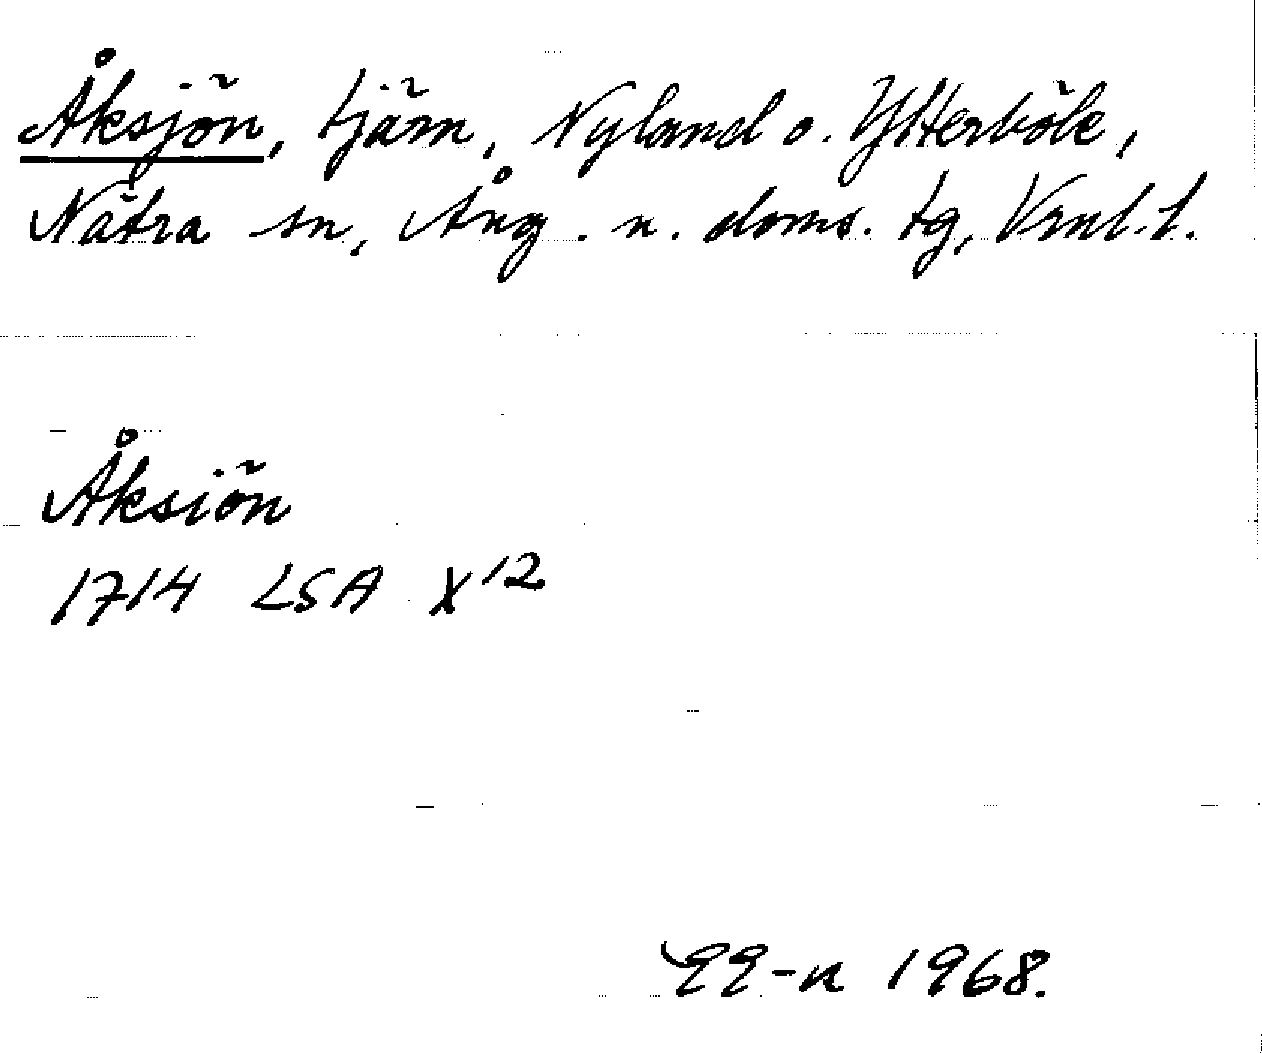 Åksjön, tjärn, Nyland o. Ytterböle,
Nätra sn, Ång. n. doms. tg, Vrnl. l.
Åksiön
1714 LSA X 12
1968.